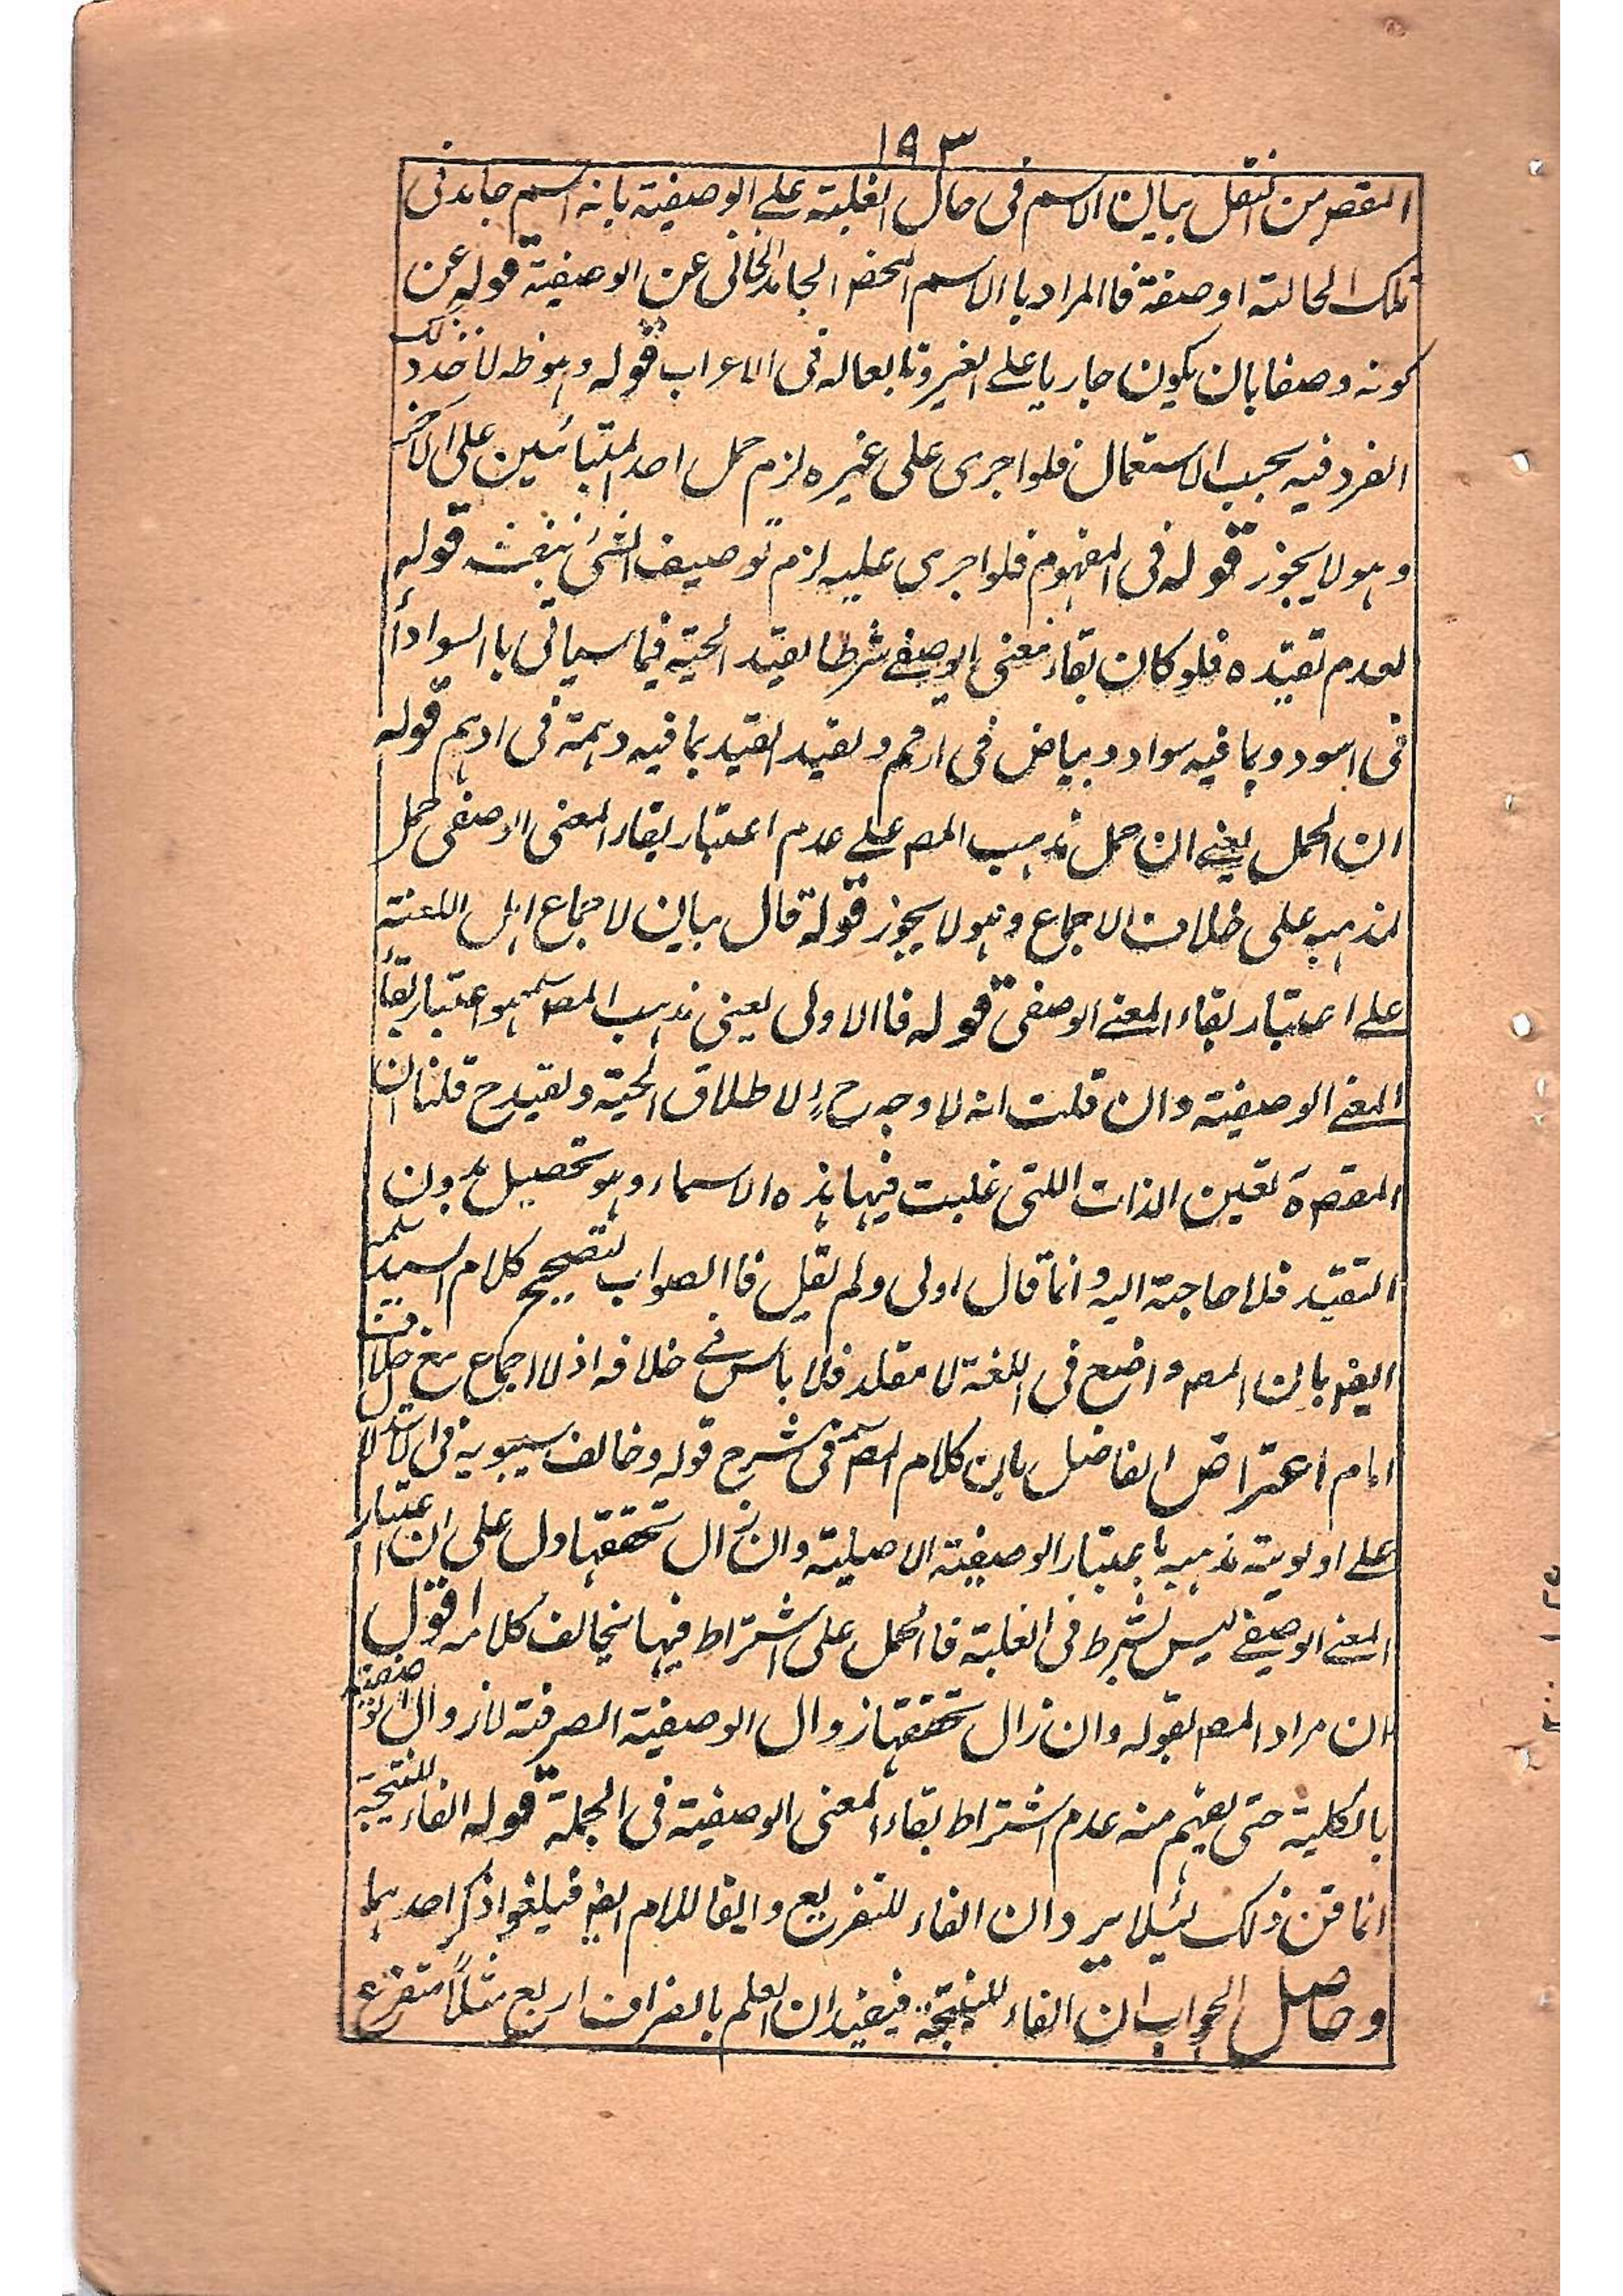 ١٩٣
المقصر من النقل بيان الاسم فى حال الغلبة على الوصفية بانه اسم جامد فى
تلك الحالته او صفة فاالمراد باالاسم المحض الجامد الخالى عن الوصفية قوله عن
كونه وصفا بان يكون جاريا على الغير وتابعا له فى الاعراب قوله وهو ظ لاخذ ذلك
الفرد فيه بحسب الاستعمال فلو اجرى على غيره لزم حمل احد المتبائنين على الاخر
وهو لا يجوز قوله فى المفهوم فلو اجرى عليه لزم توصيف الشئ بنفسه قوله
لعدم تقيده فلو كان بقاء معنى الوصفے شرطا لقيد الحية فيما سياتى باالسواد
فى اسود وبما فيه سواد وبياض فى ارقم ولقيد القيد بما فيه دهمة فى ادهم قوله
ان الحمل يعنے ان حمل مذهب المص علے عدم اعتبار بقاء المعنى الوصفى حمل
لمذهبه على خلاف الاجماع وهو لا يجوز قوله قال بيان لاجماع اهل اللغة
علے اعتبار بقاء المعنے الوصفى قوله فاالاولى يعنى مذهب المص هو اعتبار بقاء
المعنے الوصفية وان قلت انه لا وجه ح لاطلاق الحية ولقيد ح قلنا ان
المقصرة تعين الذات اللتى غلبت فيها هذه الاسماء وهو تحصيل بدون
التقيد فلا حاجة اليه وانما قال اولى ولم يقل فاالصواب لتصحيح كلام السيد
ايضا بان المص واضع فى اللغة لا مقلد فلا باس فے خلافه اذ لا اجماع مع خلاف
امام اعتراض الفاضل بان كلام المص فى شرح قوله وخالف سيبويه فى الاستدلال
علے اولوية مذهبه باعتبار الوصفية الاصلية وان زال تحققها دل على ان اعتبار
المعنے الوصفے ليس بشرط فى الغلبة فاالحمل على اشتراط فيها يخالف كلامه اقول
ان مراد المص بقوله وان زال تحققها زوال الوصفية الصرفة لا زوال الوصفية
بالكلية حتى يفهم منه عدم اشتراط بقاء المعنى الوصفية فى الجملة قوله الفاء للنتيجة
انما قن ذلك لئلا يرد ان الفاء للتفريع وايضا اللام ايضا فيلغو اذ ذكر احدهما
وحاصل الجواب ان الفاء للنتيجة فيفيد ان العلم بالضراف اربع مثلا متفرع